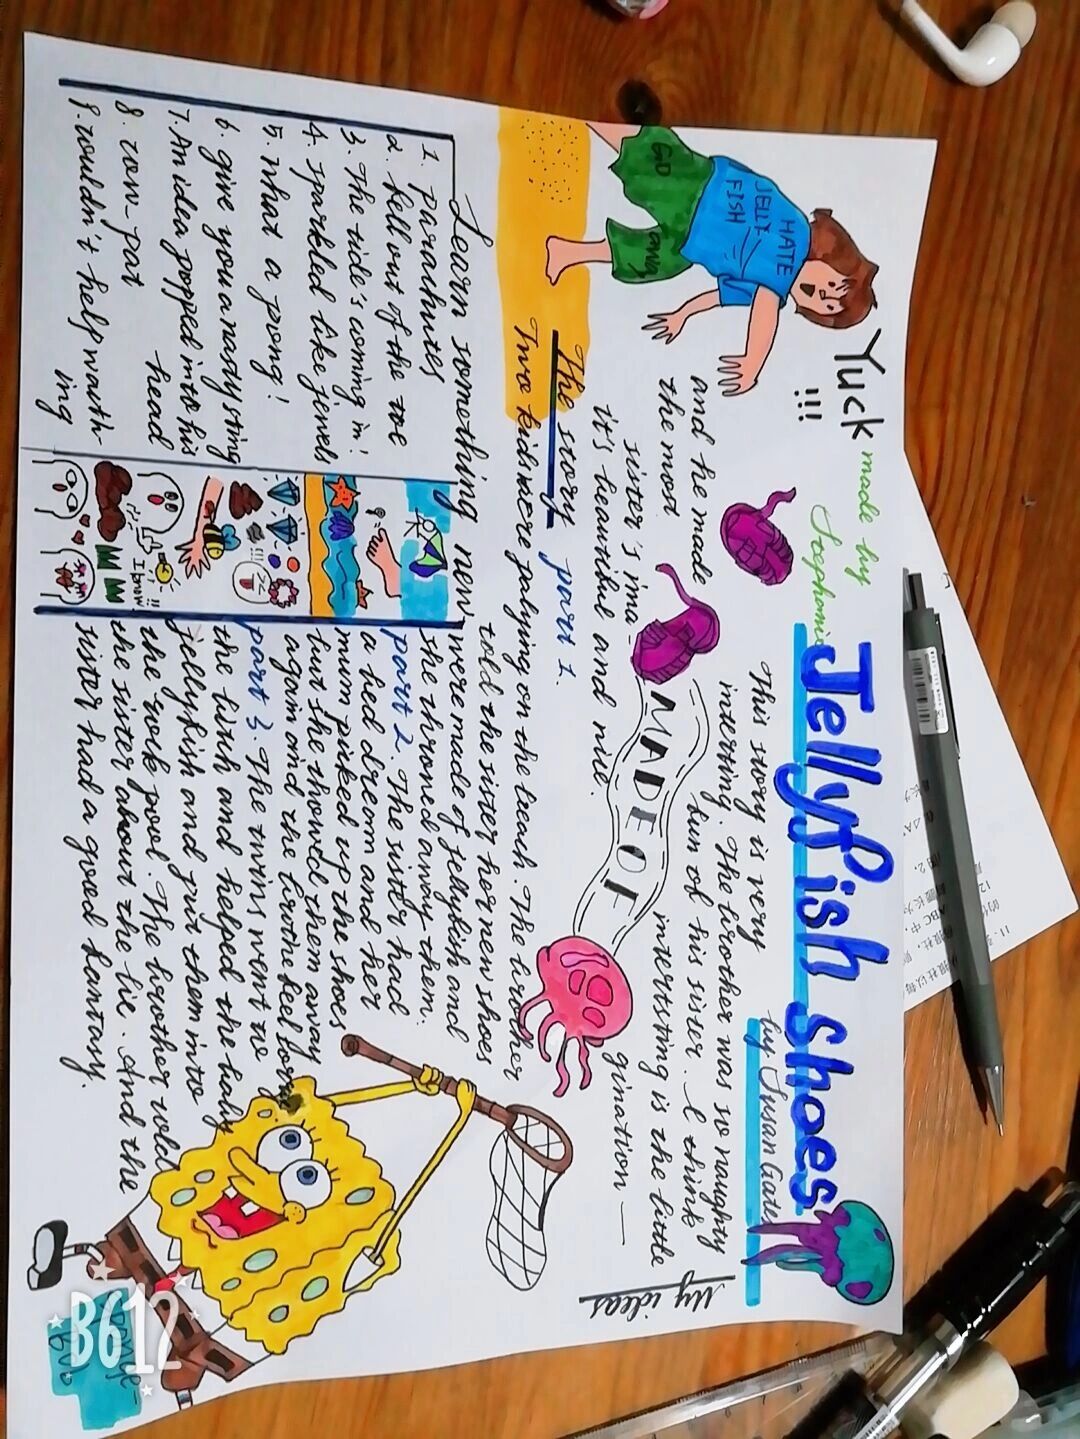 Jellyfish shoes
by Susan Gates
Yuck
!!!
made by
Stephanie
HATE
JELLY
FISH
GO
AWAY
This story is very
interting. The brother was so naughty
and he made fun of his sister. I think
the most intertsting is the little
sister's ima-
gination —
it's beautiful and nice.
My ideas
MADE OF
The story part 1.
Two kids were palying on the beach. The brother
told the sister her new shoes
were made of jellyfish and
she throned away them.
part 2. The sister had
a bed dream and her
mum picked up the shoes
but she thowld them away
again and the brothe feel
part 3. The twins went to
the and helped the baby
jellyfish and put them into
the rolk pool. The brother told
the sister about the lie. And the
sister had a good fantasy.
Learn something new
1. parachutes
2. fell out of the toe
3. The tide's coming in!
4. sparkled like jewels
5. what a pong!
6. give you a nasty sting
7. An idea popped into his
head
8. row-pat
9. couldn't help
ing
I know!!
B612